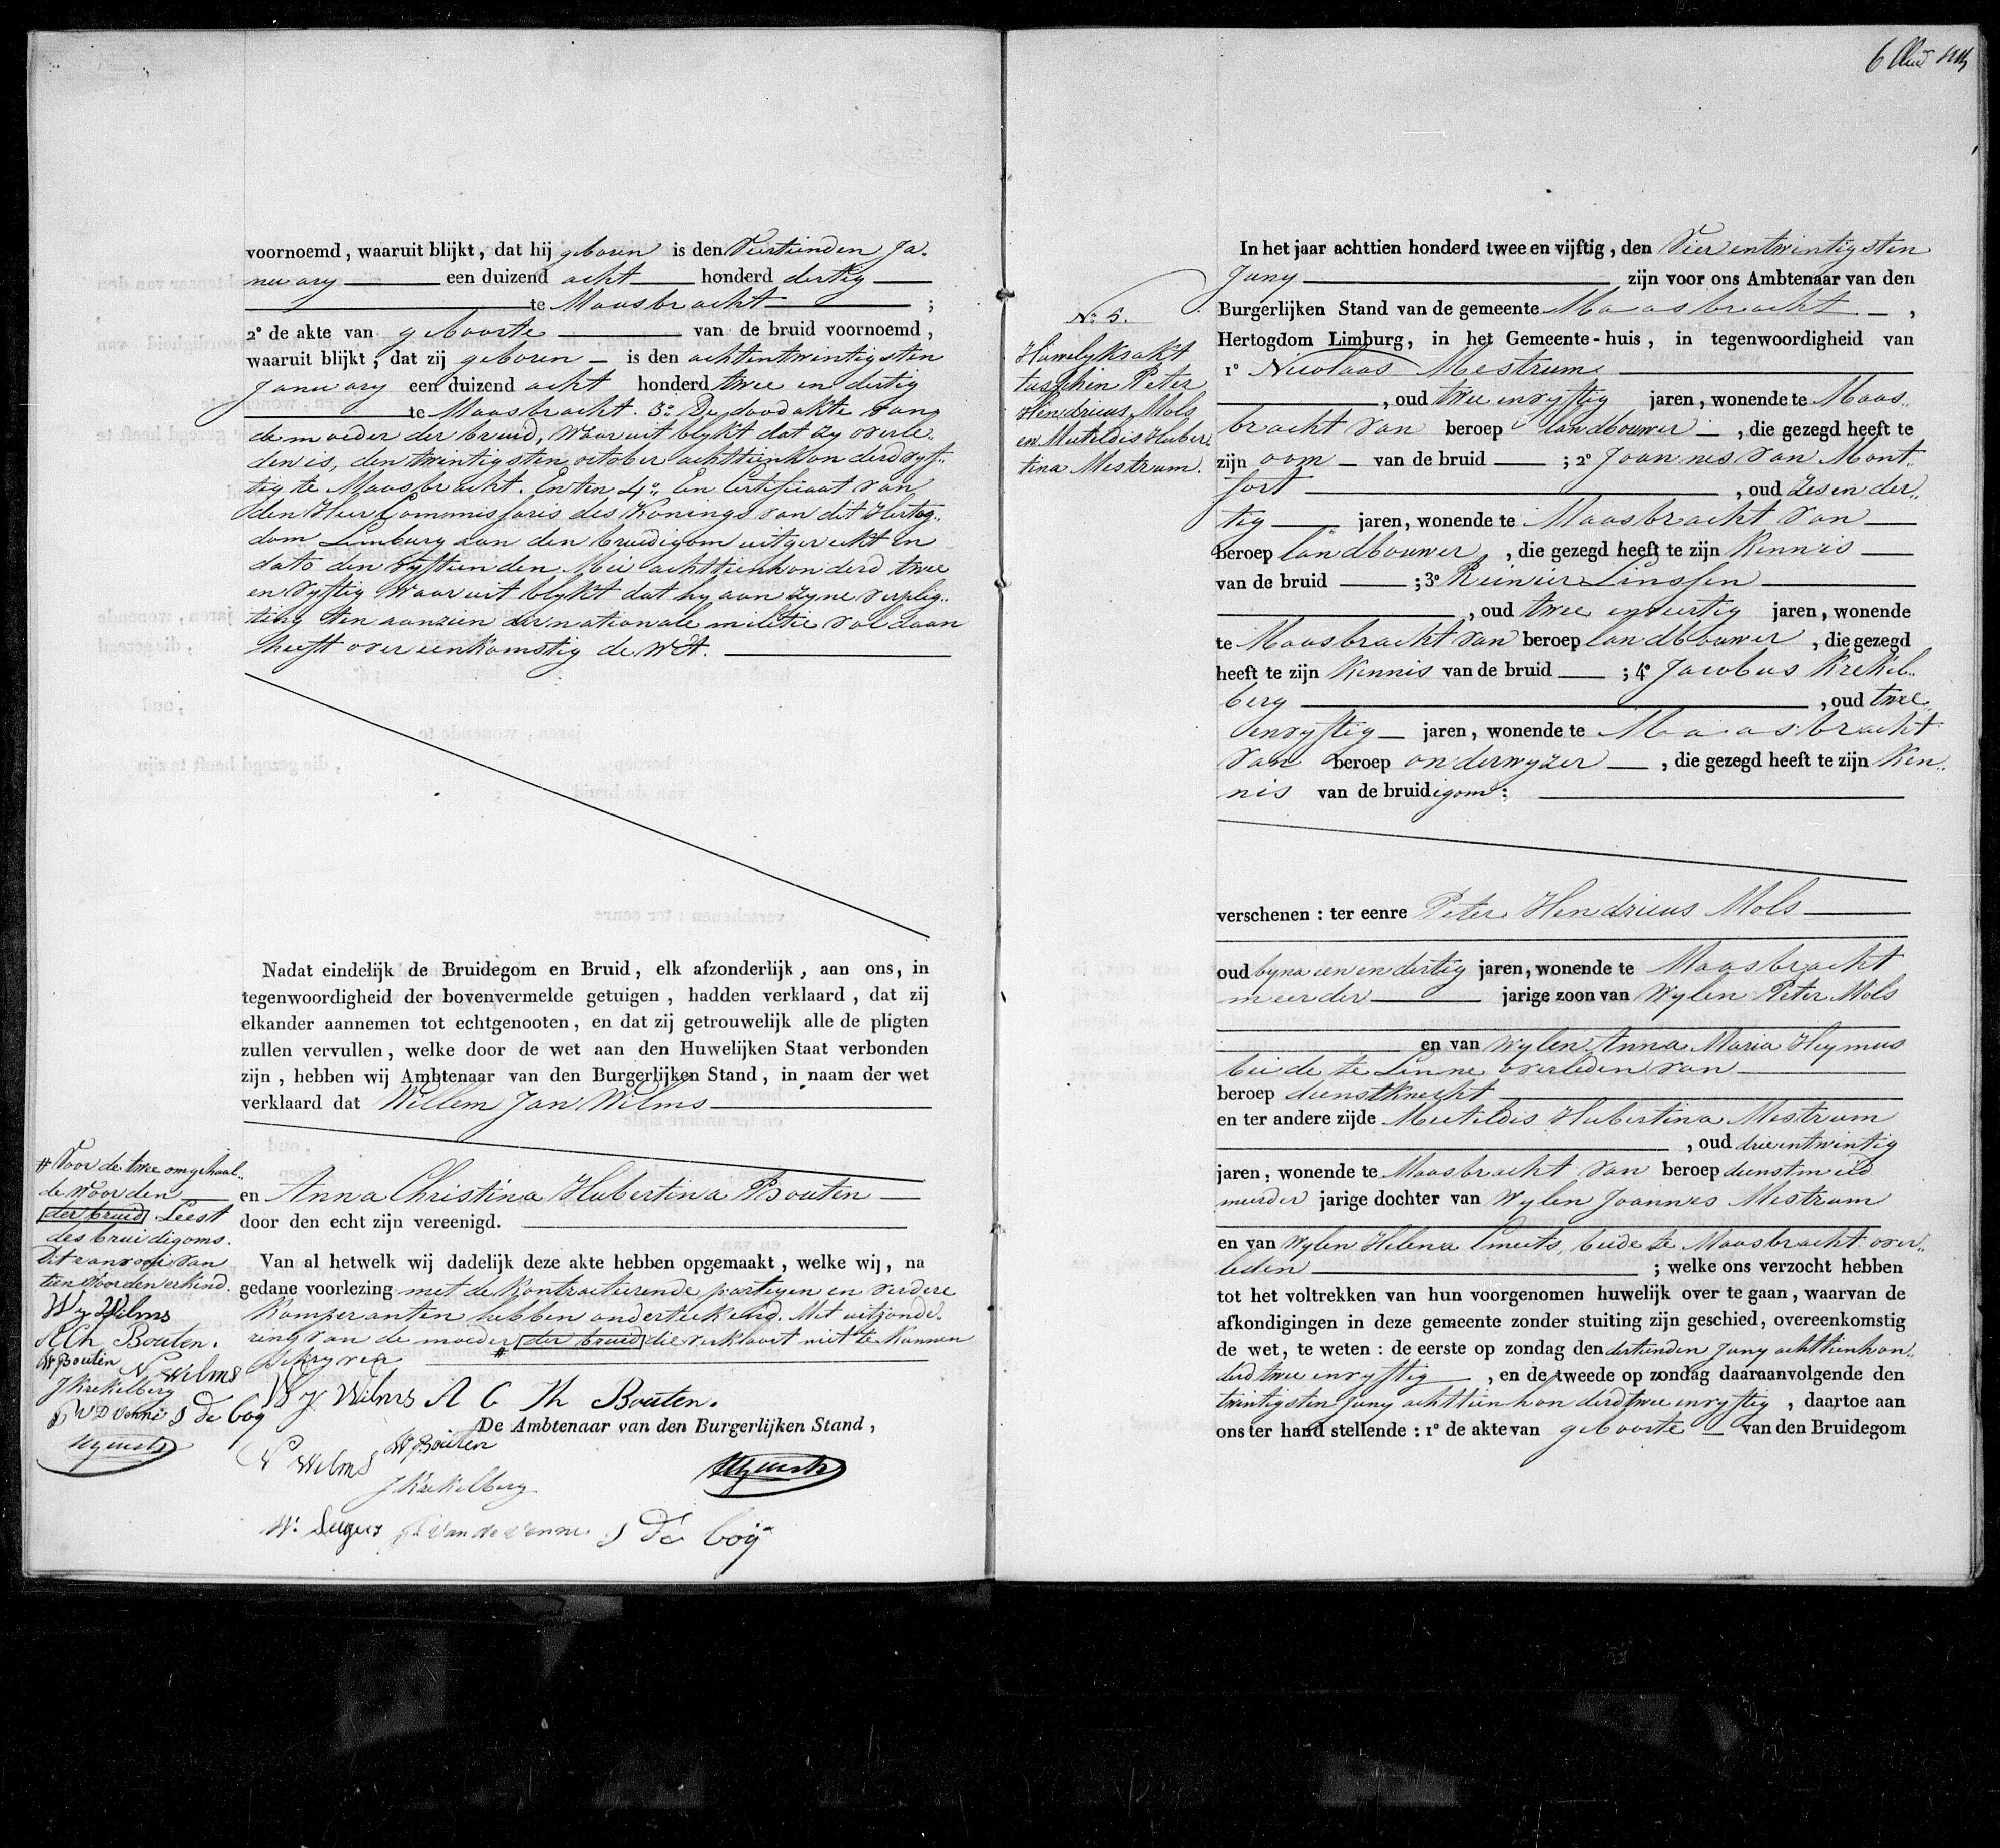 voornoemd, waaruit blijkt, dat hij geboren is den Veertienden Ja-
nuary een duizend acht honderd dertig
te Maasbracht ;
2° de akte van geboorte van de bruid voornoemd,
waaruit blijkt, dat zij geboren is den achtentwintigsten
January een duizend acht honderd twee en dertig
te Maasbracht. 3° De doodakte van
de moeder der bruid, waar uit blykt dat zy overle-
den is, den twintigsten october achttienhonderd vyf-
tig te Maasbracht. En ten 4° Een Certificaat van
den Heer Commissaris des Konings van dit Hertog-
dom Limburg aan den bruidigom uitgereikt in
dato den vyftienden Mei achttienhonderd twee
en vyftig waar uit blykt dat hy aan zyne verplig-
ting ten aanzien der nationale militie voldaan
heeft overeenkomstig de wet.
Nadat eindelijk de Bruidegom en Bruid, elk afzonderlijk, aan ons, in
tegenwoordigheid der bovenvermelde getuigen, hadden verklaard, dat zij
elkander aannemen tot echtgenooten, en dat zij getrouwelijk alle de pligten
zullen vervullen, welke door de wet aan den Huwelijken Staat verbonden
zijn, hebben wij Ambtenaar van den Burgerlijken Stand, in naam der wet
verklaard dat Willem Jan Wilms
en Anna Christina Hubertina Bouten
door den echt zijn vereenigd.
Van al hetwelk wij dadelijk deze akte hebben opgemaakt, welke wij, na
gedane voorlezing met de Kontracteerende partyen en verdere
Komparanten hebben onderteekend. Met uitzonde-
ring van de moeder # der bruid die verklaart niet te kunnen
schryven
W J Wilms A C H Bouten.
De Ambtenaar van den Burgerlijken Stand,
W Bouten
N Wilms
J Krekelberg
W. Segers van de Venne S De Coy
# Voor de twee omgehaal-
de woorden
der bruid Leest
des bruidigoms.
Dit renvooi van
tien woorden erkend.
W J Wilms
A C h Bouten.
W Bouten N Wilms
J Krekelberg
V D Venne S De Coy
6
N° 5.
Huwelykakt
tusschen Peter
Hendricus Mols
en Mechtildis Huber-
tina Mestrum.
In het jaar achttien honderd twee en vijftig, den Vier entwintigsten
Juny zijn voor ons Ambtenaar van den
Burgerlijken Stand van de gemeente Maasbracht ,
Hertogdom Limburg, in het Gemeente-huis, in tegenwoordigheid van
1° Nicolaas Mestrum
, oud twee envyftig jaren, wonende te Maas-
bracht van beroep landbouwer , die gezegd heeft te
zijn oom van de bruid ; 2° Joannes van Mont-
fort , oud Zes en der-
tig jaren, wonende te Maasbracht van
beroep landbouwer , die gezegd heeft te zijn Kennis
van de bruid ; 3° Reinier Linssen
, oud twee enveertig jaren, wonende
te Maasbracht van beroep landbouwer , die gezegd
heeft te zijn Kennis van de bruid ; 4° Jacobus Krekel-
berg , oud twee-
envyftig jaren, wonende te Maasbracht
van beroep onderwyzer , die gezegd heeft te zijn Ken-
nis van de bruidigom :
verschenen : ter eenre Peter Hendricus Mols
oud byna een en dertig jaren, wonende te Maasbracht
meerder jarige zoon van Wylen Peter Mols
en van Wylen Anna Maria Heymus
beide te Linne overleden van
beroep dienstknecht
en ter andere zijde Mechtildis Hubertina Mestrum
, oud drieentwintig
jaren, wonende te Maasbracht van beroep dienstmeid
meerder jarige dochter van Wylen Joannes Mestrum
en van Wylen Helena Smeets, beide te Maasbracht over-
leden ; welke ons verzocht hebben
tot het voltrekken van hun voorgenomen huwelijk over te gaan, waarvan de
afkondigingen in deze gemeente zonder stuiting zijn geschied, overeenkomstig
de wet, te weten : de eerste op zondag den dertienden Juny achttienhon-
derd twee envyftig , en de tweede op zondag daaraanvolgende den
twintigsten Juny achttienhonderd twee envyftig , daartoe aan
ons ter hand stellende : 1° de akte van geboorte van den Bruidegom